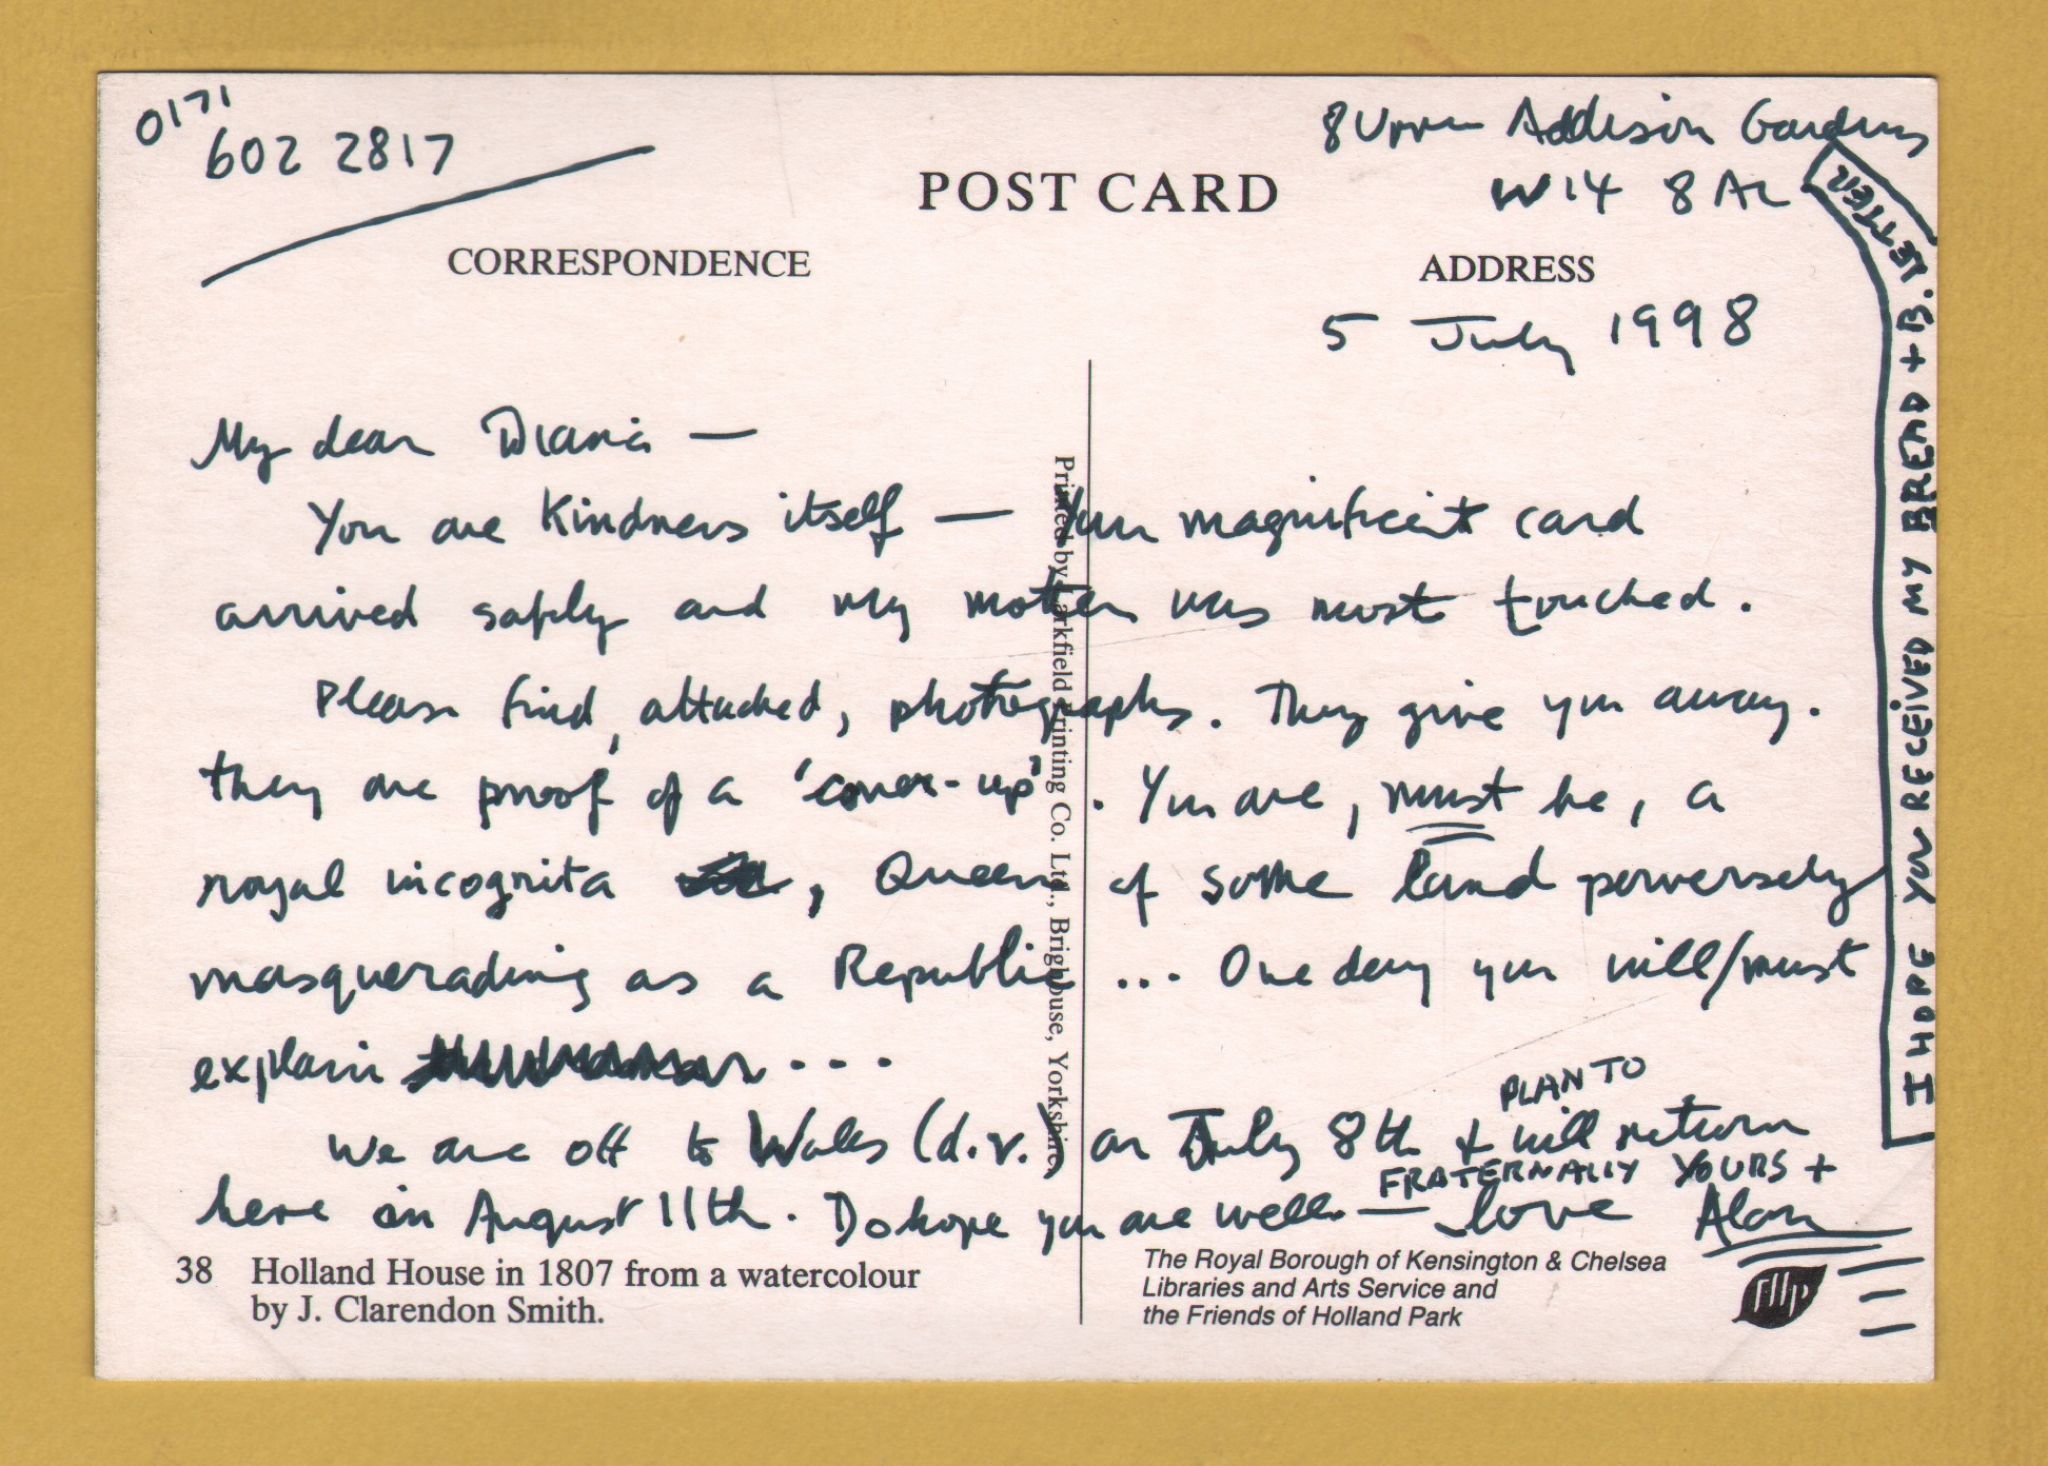 0171
602 2817
8 Upper Addison Gardens
W14 8AL
POST CARD
CORRESPONDENCE
ADDRESS
5 July 1998
My dear Diana —
You are Kindness itself — Your magnificent card
arrived safely and my mother was most touched.
Please find, attached, photographs. They give you away.
They are proof of a 'cover-up'. You are, must be, a
royal incognita , Queen of some land perversely
masquerading as a Republic ... One day you will/must
explain ...
PLAN TO
We are off to Wales (d.v.) on July 8th + will return
FRATERNALLY YOURS +
here on August 11th. Do hope you are well. — love Alan
I HOPE YOU RECEIVED MY BREAD + B. LETTER
Printed by Larkfield Printing Co. Ltd., Brighouse, Yorkshire.
38 Holland House in 1807 from a watercolour
by J. Clarendon Smith.
The Royal Borough of Kensington & Chelsea
Libraries and Arts Service and
the Friends of Holland Park